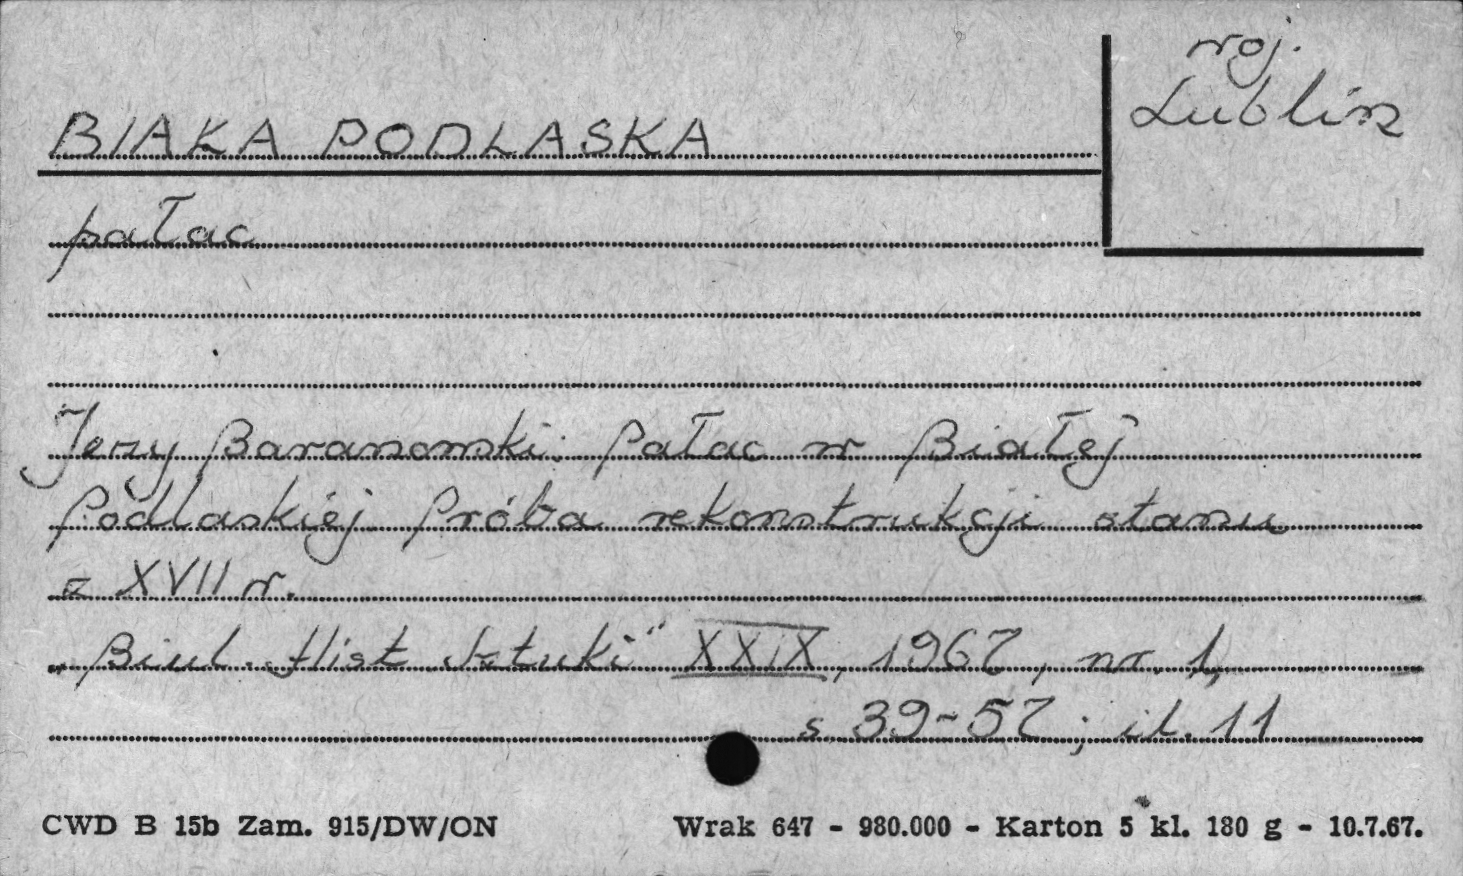 woj.
Lublin
BIAŁA PODLASKA
pałac
Jerzy Baranowski: Pałac w Białej
Podlaskiej. Próba rekonstrukcji stanu
z XVII w.
„Biul. Hist Sztuki" XXIX, 1967, nr. 1,
s. 39-57; il. 11
CWD B 15b Zam. 915/DW/ON Wrak 647 - 980.000 - Karton 5 kl. 180 g - 10.7.67.